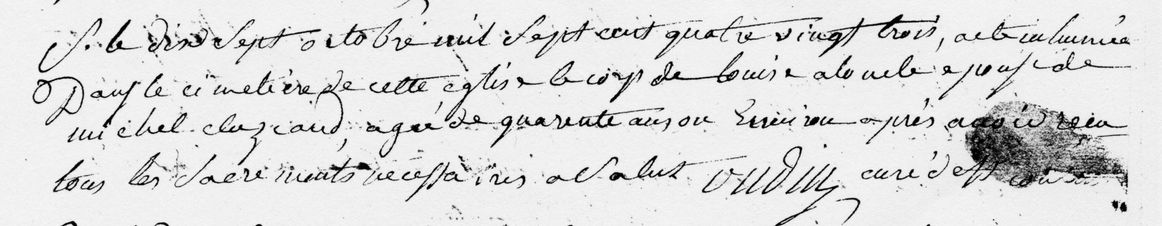 S. le dix Sept octobre mil Sept cent quatre vingt trois, a ete inhumée
Dans le cimetière de cette église le corps de Louise alouelle epouse de
michel cluzeaud agée de quarente ans ou Environ après avoir recu
tous les Sacrements necessaires a Salut oudin curé de st